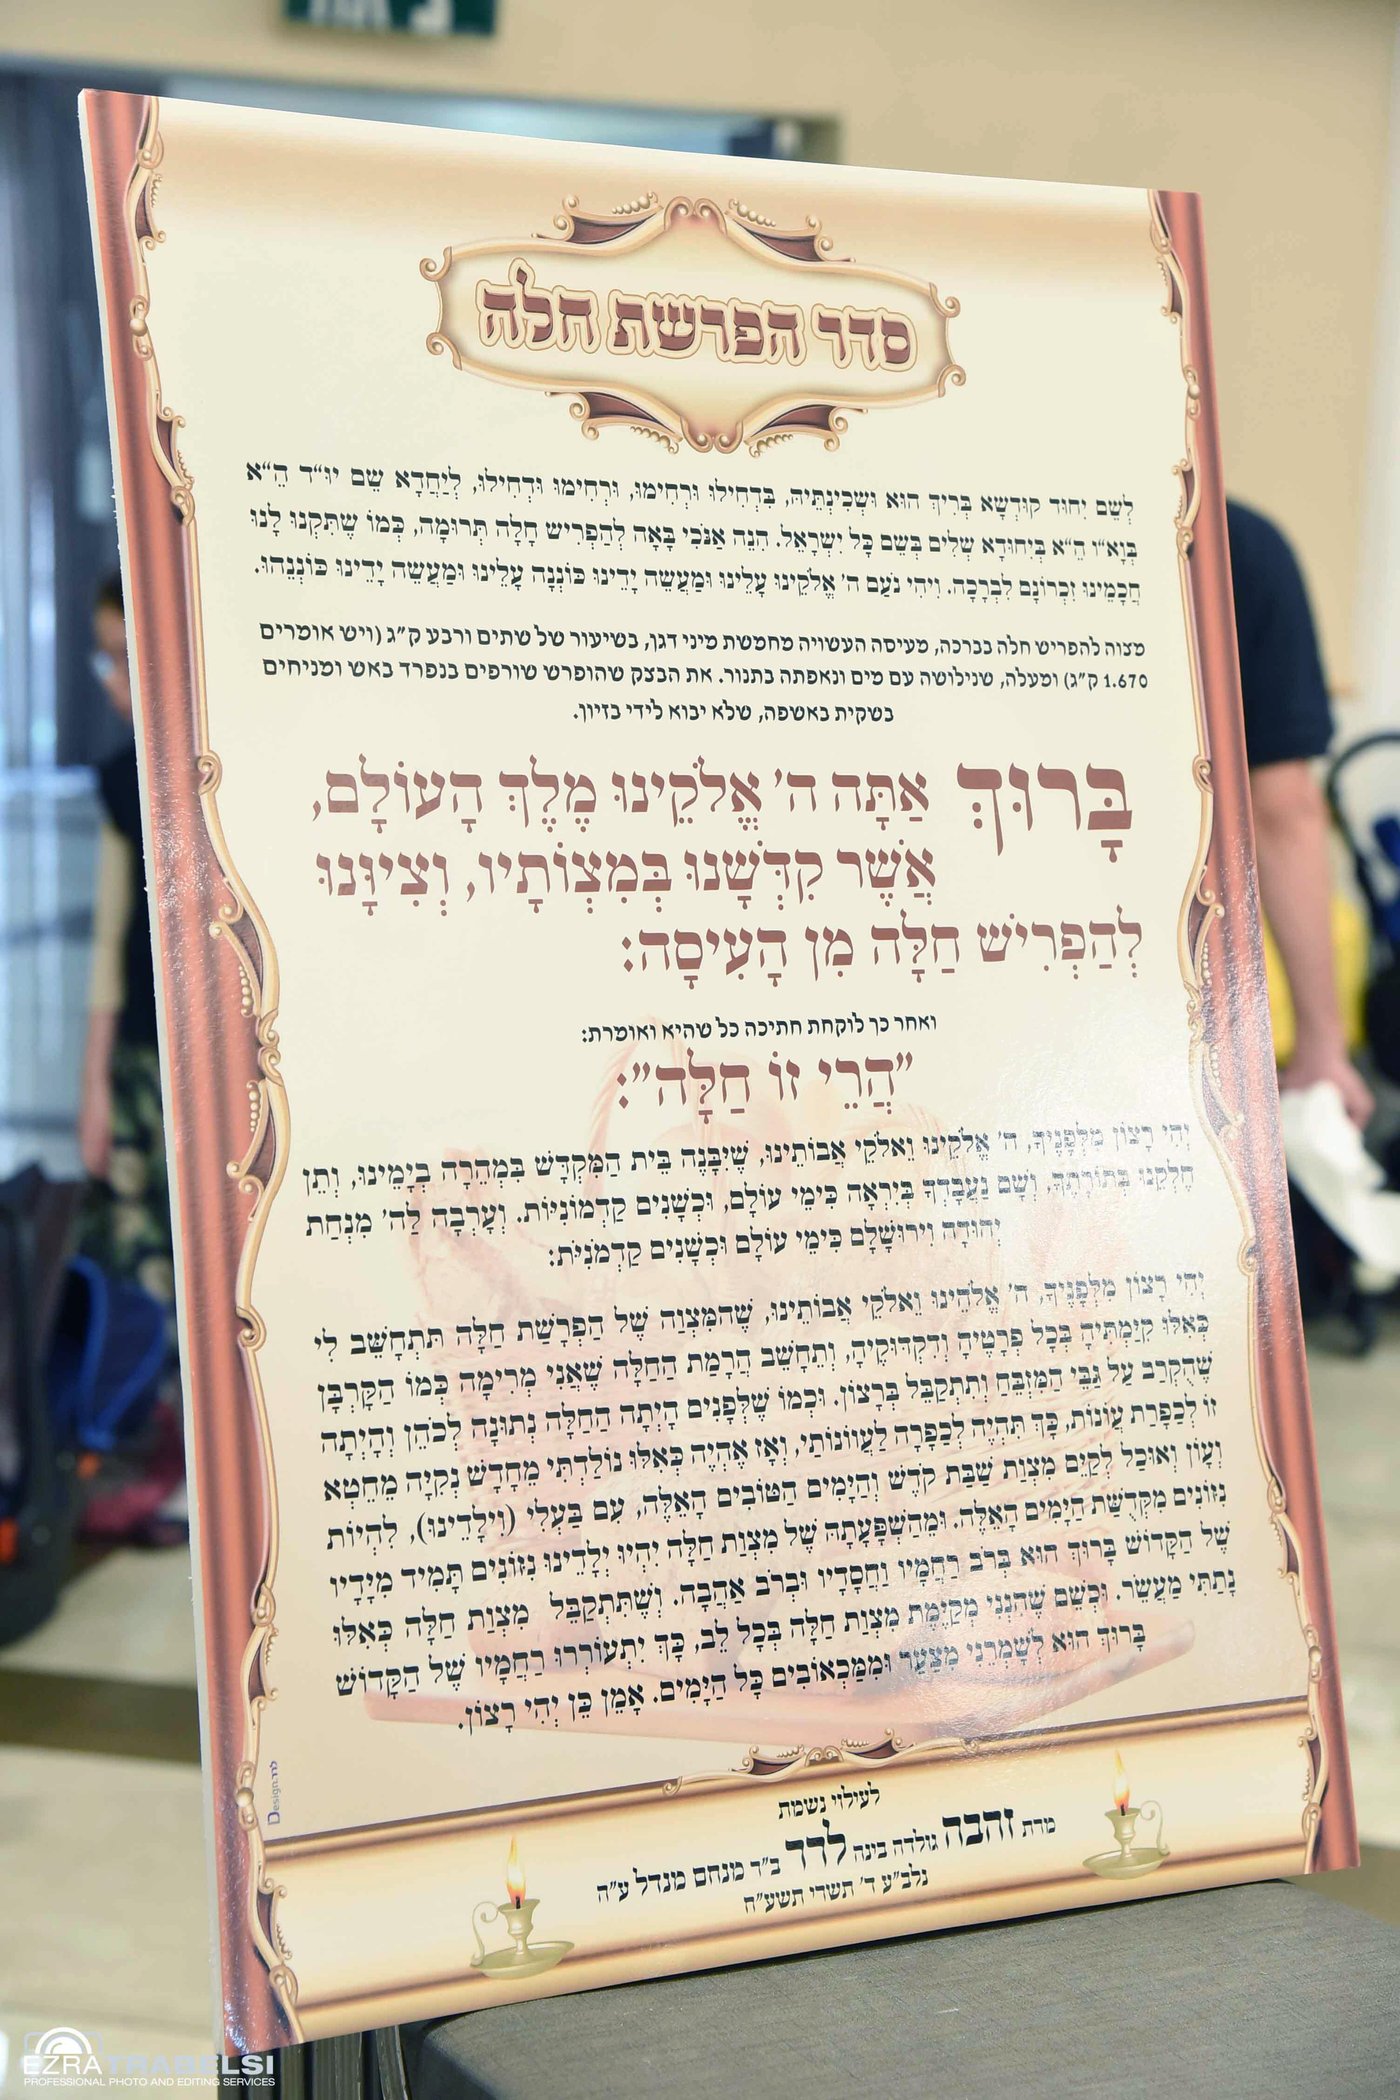 סדר הפרשת חלה
לְשֵׁם יִחוּד קוּדְשָׁא בְּרִיךְ הוּא וּשְׁכִינְתֵּיהּ, בִּדְחִילוּ וּרְחִימוּ, וּרְחִימוּ וּדְחִילוּ, לְיַחֲדָא שֵׁם יוּ״ד הֵ״א
בְּוָא״ו הֵ״א בְּיִחוּדָא שְׁלִים בְּשֵׁם כָּל יִשְׂרָאֵל. הִנֵּה אַנֹכִי בָּאָה לְהַפְרִישׁ חַלָּה תְּרוּמָה, כְּמוֹ שֶׁתִּקְּנוּ לָנוּ
חֲכָמֵינוּ זִכְרוֹנָם לִבְרָכָה. וִיהִי נֹעַם ה׳ אֱלֹקֵינוּ עָלֵינוּ וּמַעֲשֵׂה יָדֵינוּ כּוֹנְנָה עָלֵינוּ וּמַעֲשֵׂה יָדֵינוּ כּוֹנְנֵהוּ.
מצוה להפריש חלה בברכה, מעיסה העשויה מחמשת מיני דגן, בשיעור של שתים ורבע ק״ג (ויש אומרים
1.670 ק״ג) ומעלה, שנילושה עם מים ונאפתה בתנור. את הבצק שהופרש שורפים בנפרד באש ומניחים
בשקית באשפה, שלא יבוא לידי בזיון.
בָּרוּךְ אַתָּה ה׳ אֱלֹקֵינוּ מֶלֶךְ הָעוֹלָם,
אֲשֶׁר קִדְּשָׁנוּ בְּמִצְוֹתָיו, וְצִיוָּנוּ
לְהַפְרִישׁ חַלָּה מִן הָעִיסָה:
ואחר כך לוקחת חתיכה כל שהיא ואומרת:
״הֲרֵי זוֹ חַלָּה״:
יְהִי רָצוֹן מִלְּפָנֶיךָ, ה׳ אֱלֹקֵינוּ וֵאלֹקֵי אֲבוֹתֵינוּ, שֶׁיִּבָּנֶה בֵּית הַמִּקְדָּשׁ בִּמְהֵרָה בְיָמֵינוּ, וְתֵן
חֶלְקֵנוּ בְּתוֹרָתֶךָ, וְשָׁם נַעֲבָדְךָ בְּיִרְאָה כִּימֵי עוֹלָם, וּכְשָׁנִים קַדְמוֹנִיּוֹת. וְעָרְבָה לַה׳ מִנְחַת
יְהוּדָה וִירוּשָׁלָם כִּימֵי עוֹלָם וּכְשָׁנִים קַדְמֹנִיֹּת:
יְהִי רָצוֹן מִלְּפָנֶיךָ, ה׳ אֱלֹהֵינוּ וֵאלֹקֵי אֲבוֹתֵינוּ, שֶׁהַמִּצְוָה שֶׁל הַפְרָשַׁת חַלָּה תִּתְחַשֵּׁב לִי
כְּאִלּוּ קִיַּמְתִּיהָ בְּכָל פְּרָטֶיהָ וְדִקְדּוּקֶיהָ, וְתֵחָשֵׁב הֲרָמַת הַחַלָּה שֶׁאֲנִי מְרִימָה כְּמוֹ הַקָּרְבָּן
שֶׁהֻקְרַב עַל גַּבֵּי הַמִּזְבֵּחַ וְתִתְקַבֵּל בְּרָצוֹן. וּכְמוֹ שֶׁלְּפָנִים הָיְתָה הַחַלָּה נְתוּנָה לַכֹּהֵן וְהָיְתָה
זוֹ לְכַפָּרַת עֲוֹנוֹת, כָּךְ תִּהְיֶה לְכַפָּרָה לַעֲווֹנוֹתַי, וְאָז אֶהְיֶה כְּאִלּוּ נוֹלַדְתִּי מֵחָדָשׁ נְקִיָּה מֵחֵטְא
וְעָוֹן וְאוּכַל לְקַיֵּם מִצְוַת שַׁבַּת קֹדֶשׁ וְהַיָּמִים הַטּוֹבִים הָאֵלֶּה, עִם בַּעְלִי (וִילָדֵינוּ), לִהְיוֹת
נִזּוֹנִים מִקְּדֻשַּׁת הַיָּמִים הָאֵלֶּה. וּמֵהַשְׁפָּעָתָהּ שֶׁל מִצְוַת חַלָּה יִהְיוּ יְלָדֵינוּ נִזּוֹנִים תָּמִיד מִיָּדָיו
שֶׁל הַקָּדוֹשׁ בָּרוּךְ הוּא בְּרֹב רַחֲמָיו וַחֲסָדָיו וּבְרֹב אַהֲבָה. וְשֶׁתִּתְקַבֵּל מִצְוַת חַלָּה כְּאִלּוּ
נָתַתִּי מַעֲשֵׂר. וּכְשֵׁם שֶׁהִנְנִי מְקַיֶּמֶת מִצְוַת חַלָּה בְּכָל לֵב, כָּךְ יִתְעוֹרְרוּ רַחֲמָיו שֶׁל הַקָּדוֹשׁ
בָּרוּךְ הוּא לְשָׁמְרֵנִי מִצַּעַר וּמִמַּכְאוֹבִים כָּל הַיָּמִים. אָמֵן כֵּן יְהִי רָצוֹן.
Design:לדר
לעילוי נשמת
מרת זהבה גולדה בינה לדר ב״ר מנחם מנדל ע״ה
נלב״ע ד׳ תשרי תשע״ח
EZRA TRABELSI
PROFESSIONAL PHOTO AND EDITING SERVICES